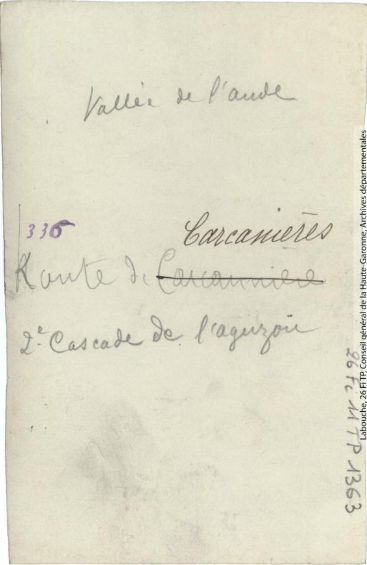 Vallée de l'aude
336
Carcanières
Route de Carcannière
2e Cascade de l'aguzou
26 Fi 11 TP 1363
Labouche, 26 FI TP, Conseil général de la Haute-Garonne, Archives départementales